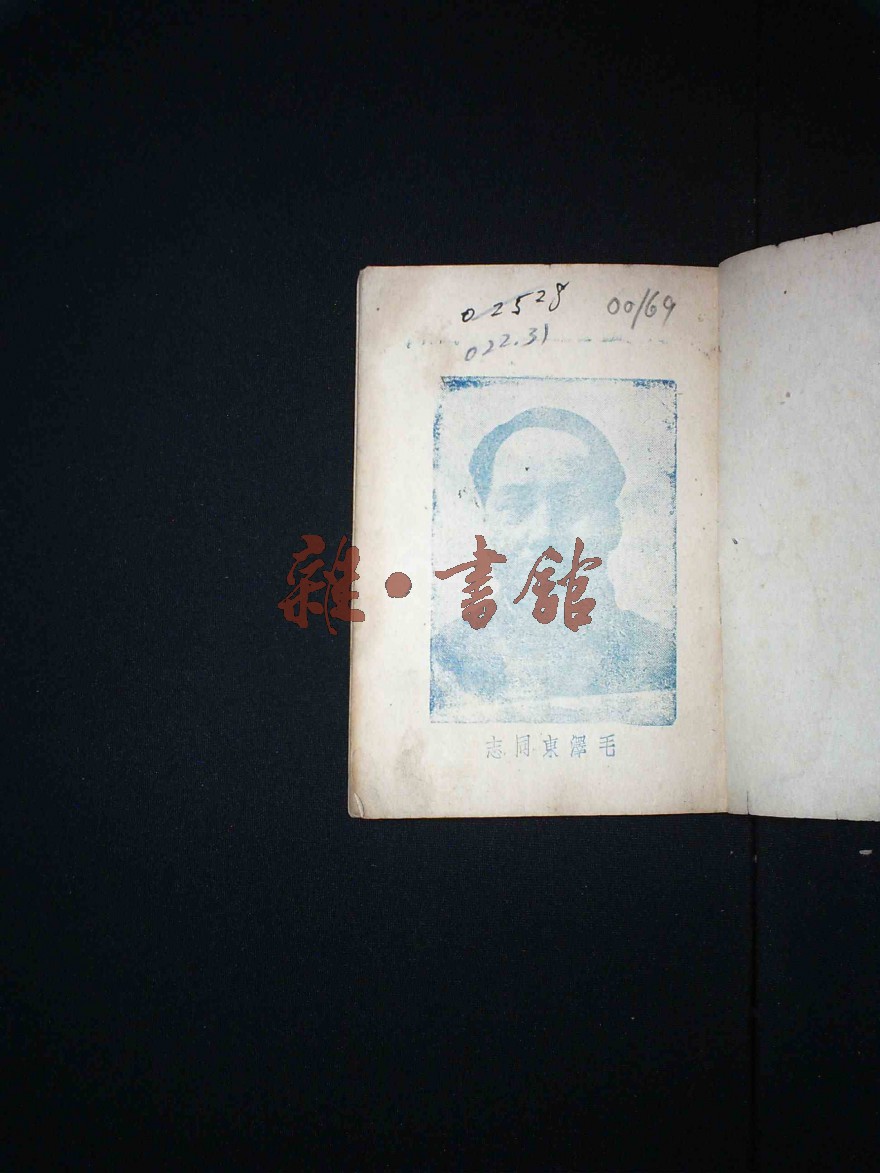 02528 00169
022.31
雜·書館
毛澤東同志